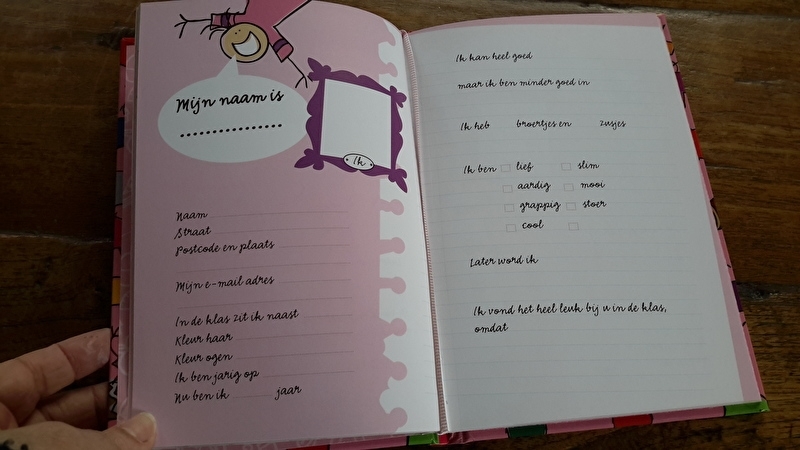 Mijn naam is
................
Ik
Naam
Straat
Postcode en plaats
Mijn e-mail adres
In de klas zit ik naast
Kleur haar
Kleur ogen
Ik ben jarig op
Nu ben ik jaar
Ik kan heel goed
maar ik ben minder goed in
Ik heb broertjes en zusjes
Ik ben lief slim
aardig mooi
grappig stoer
cool
Later word ik
Ik vond het heel leuk bij u in de klas,
omdat